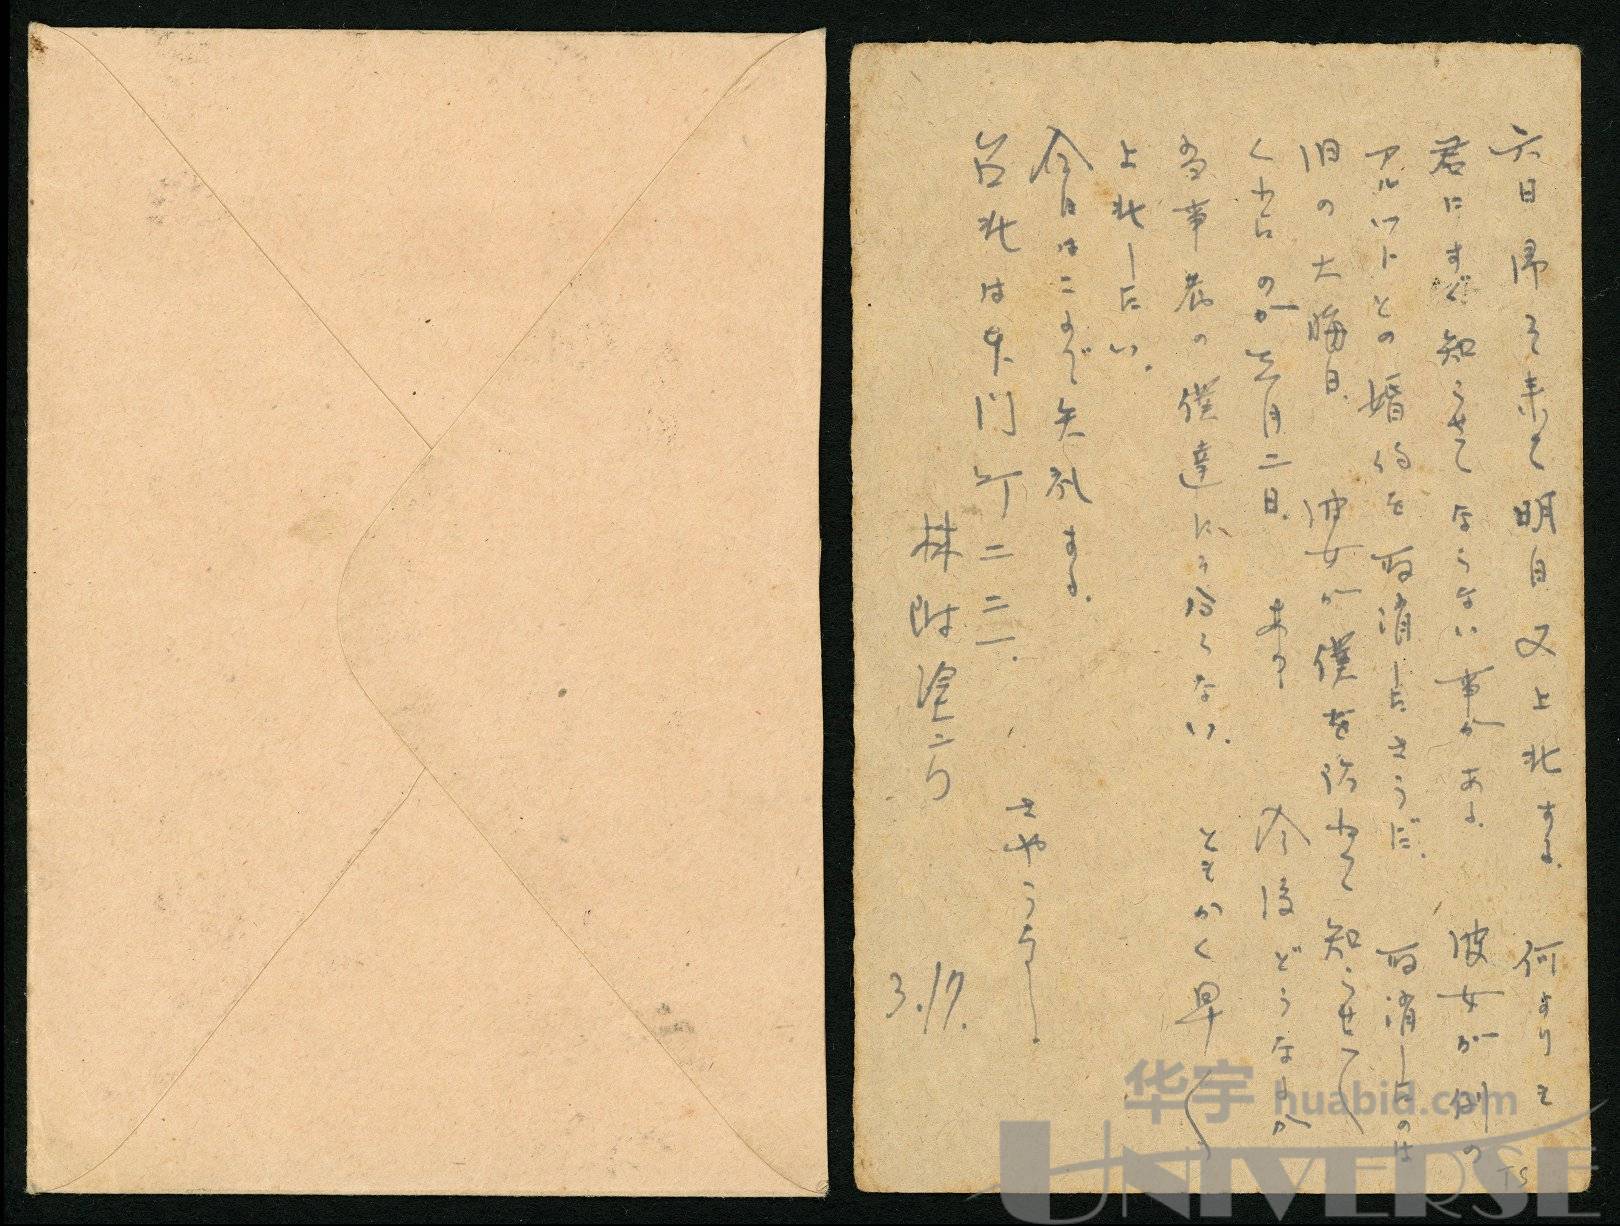 六日帰って来て明日又上北する。何よりも
君にすぐ知らせてならない事がある。彼女が例の
アルバイトとの婚約を取消したさうだ。取消したのは
旧の大晦日。彼女が僕を訪ねて知らせて
くれたのが三月二日。あゝ 今後どうなるか
当事者の僕達にも分らない。ともかく早く
上北したい。
今日はこれで失礼する。
台北は東門町二三一。
さやうなら。
林
3.17.
华宇 huabid.com
UNIVERSE
TS